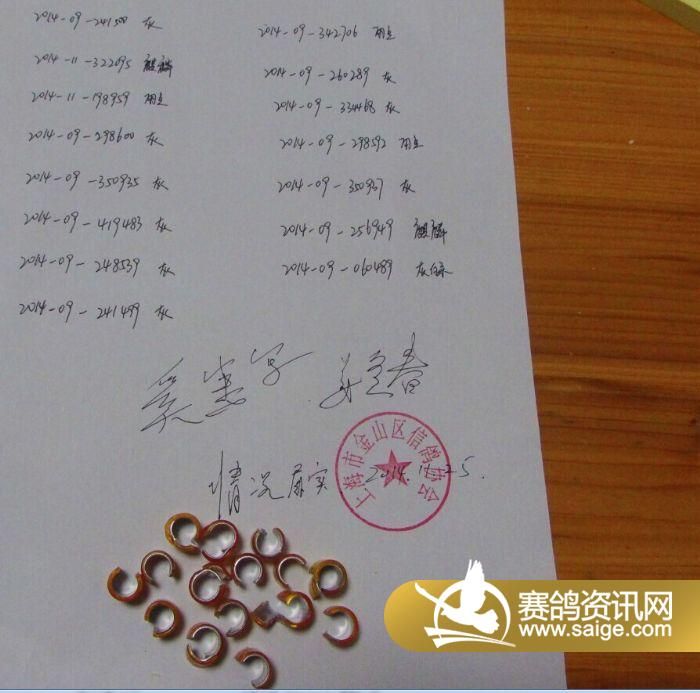 2014-09-241500 灰
2014-11-322695 麒麟
2014-11-198959 雨点
2014-09-298600 灰
2014-09-350935 灰
2014-09-419483 灰
2014-09-248539 灰
2014-09-241499 灰
2014-09-342706 雨点
2014-09-260289 灰
2014-09-334468 灰
2014-09-298592 雨点
2014-09-350937 灰
2014-09-256949 麒麟
2014-09-060489 灰白条
情况属实
上海市金山区信鸽协会
赛鸽资讯网
www.saige.com